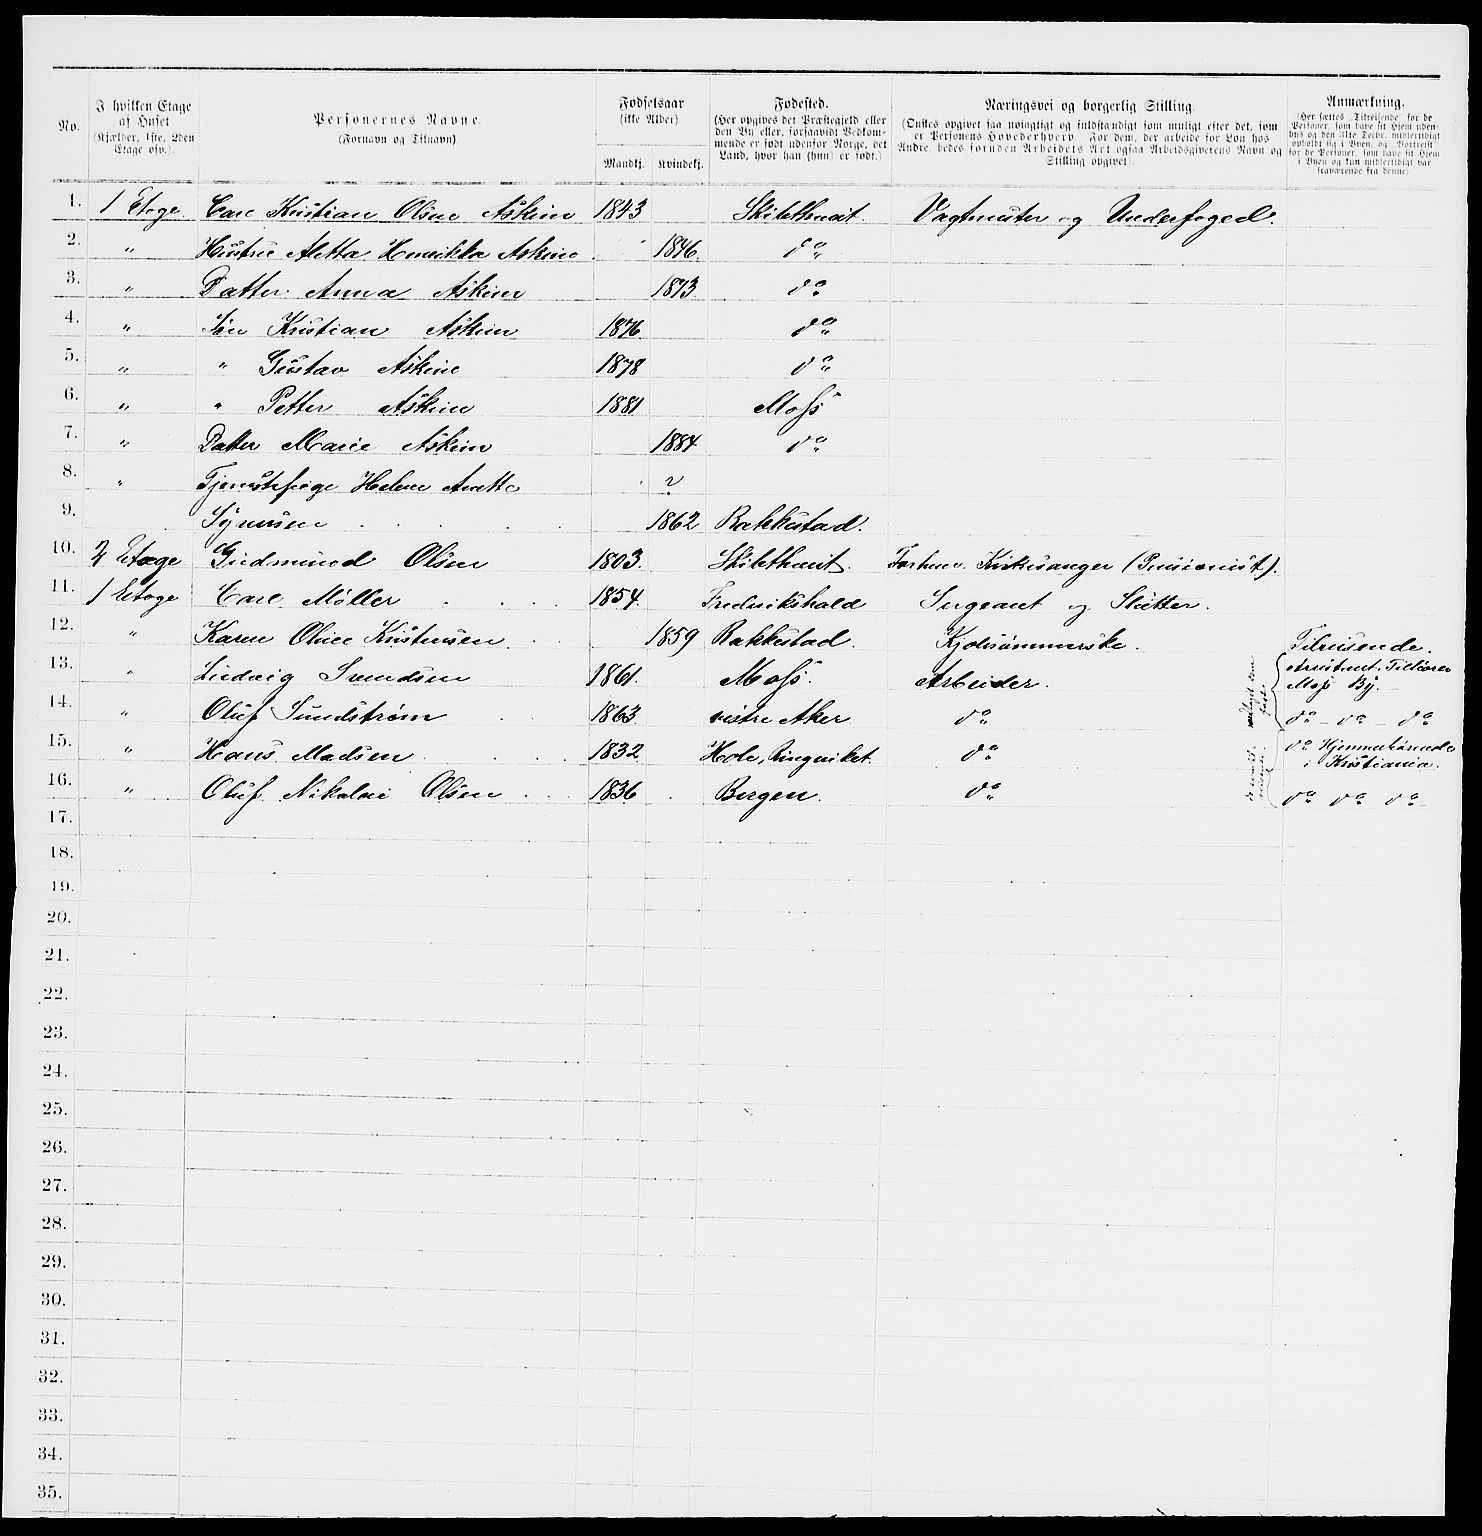 No.
I hvilken Etage af Huset (Kjælder, 1ste, 2den Etage osv.).
Personernes Navne.
(Fornavn og Tilnavn)
Fødselsaar
(ikke Alder).
Mandkj. Kvindekj.
Fødested.
(Her opgives det Præstegjeld eller den By eller, forsaavidt Vedkommende er født udenfor Norge, det Land, hvor han (hun) er født.)
Næringsvei og borgerlig Stilling.
(Ønskes opgivet saa nøiagtigt og fuldstændigt som muligt efter det, som er Personens Hovederhverv. For dem, der arbeide for Løn hos Andre, bedes foruden Arbeidets Art ogsaa Arbeidsgiverens Navn og Stilling opgivet).
Anmærkning.
(Her sættes „Tilreisende" for de Personer, som have sit Hjem udenbys og den 31te Decbr. midlertidigt opholdt sig i Byen, og „Bortreist" for de Personer, som have sit Hjem i Byen og kun midlertidigt var fraværende fra denne).
1. 1 Etage Carl Kristian Olsen Askim 1843 Skibthveit Vagtmester og Underfoged.
2. " Hustru Aletta Henrikka Askim 1846. do "
3. " Datter Anna Askim 1873. do "
4. " Søn Kristian Askim 1876. do "
5. " " Gustav Askim 1878 do "
6. " " Petter Askim 1881 Moss
7. " Datter Marie Askim 1884 do "
8. " Tjenestepige Helene Anette ?
9. Symsen 1862 Rakkestad.
10. 2 Etage Gudmund Olsen 1803. Skibthveit. Forhenv. Kirkesanger (Pensionist).
11. 1 Etage Carl Møller 1854. Fredrikshald Sergeant og Slutter.
12. " Karen Oline Kristensen 1859 Rakkestad. Kjolesømmerske. Tilreisende.
13. " Ludvig Svendsen 1861. Moss. Arbeider. Arrestant. Tilhører
Moss By.
14. " Oluf Sundstrøm 1863. vestre Aker. do " do " - do - do "
15. " Hans Madsen 1832 Hole, Ringeriket. do " do Hjemmehørende
i Kristiania.
16. " Oluf Nikolai Olsen 1836 Bergen. do " do " do " do "
17.
18.
19.
20.
21.
22.
23.
24.
25.
26.
27.
28.
29.
30.
31.
32.
33.
34.
35.